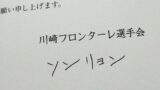 願い申し上げます。
川崎フロンターレ選手会
ソンリョン